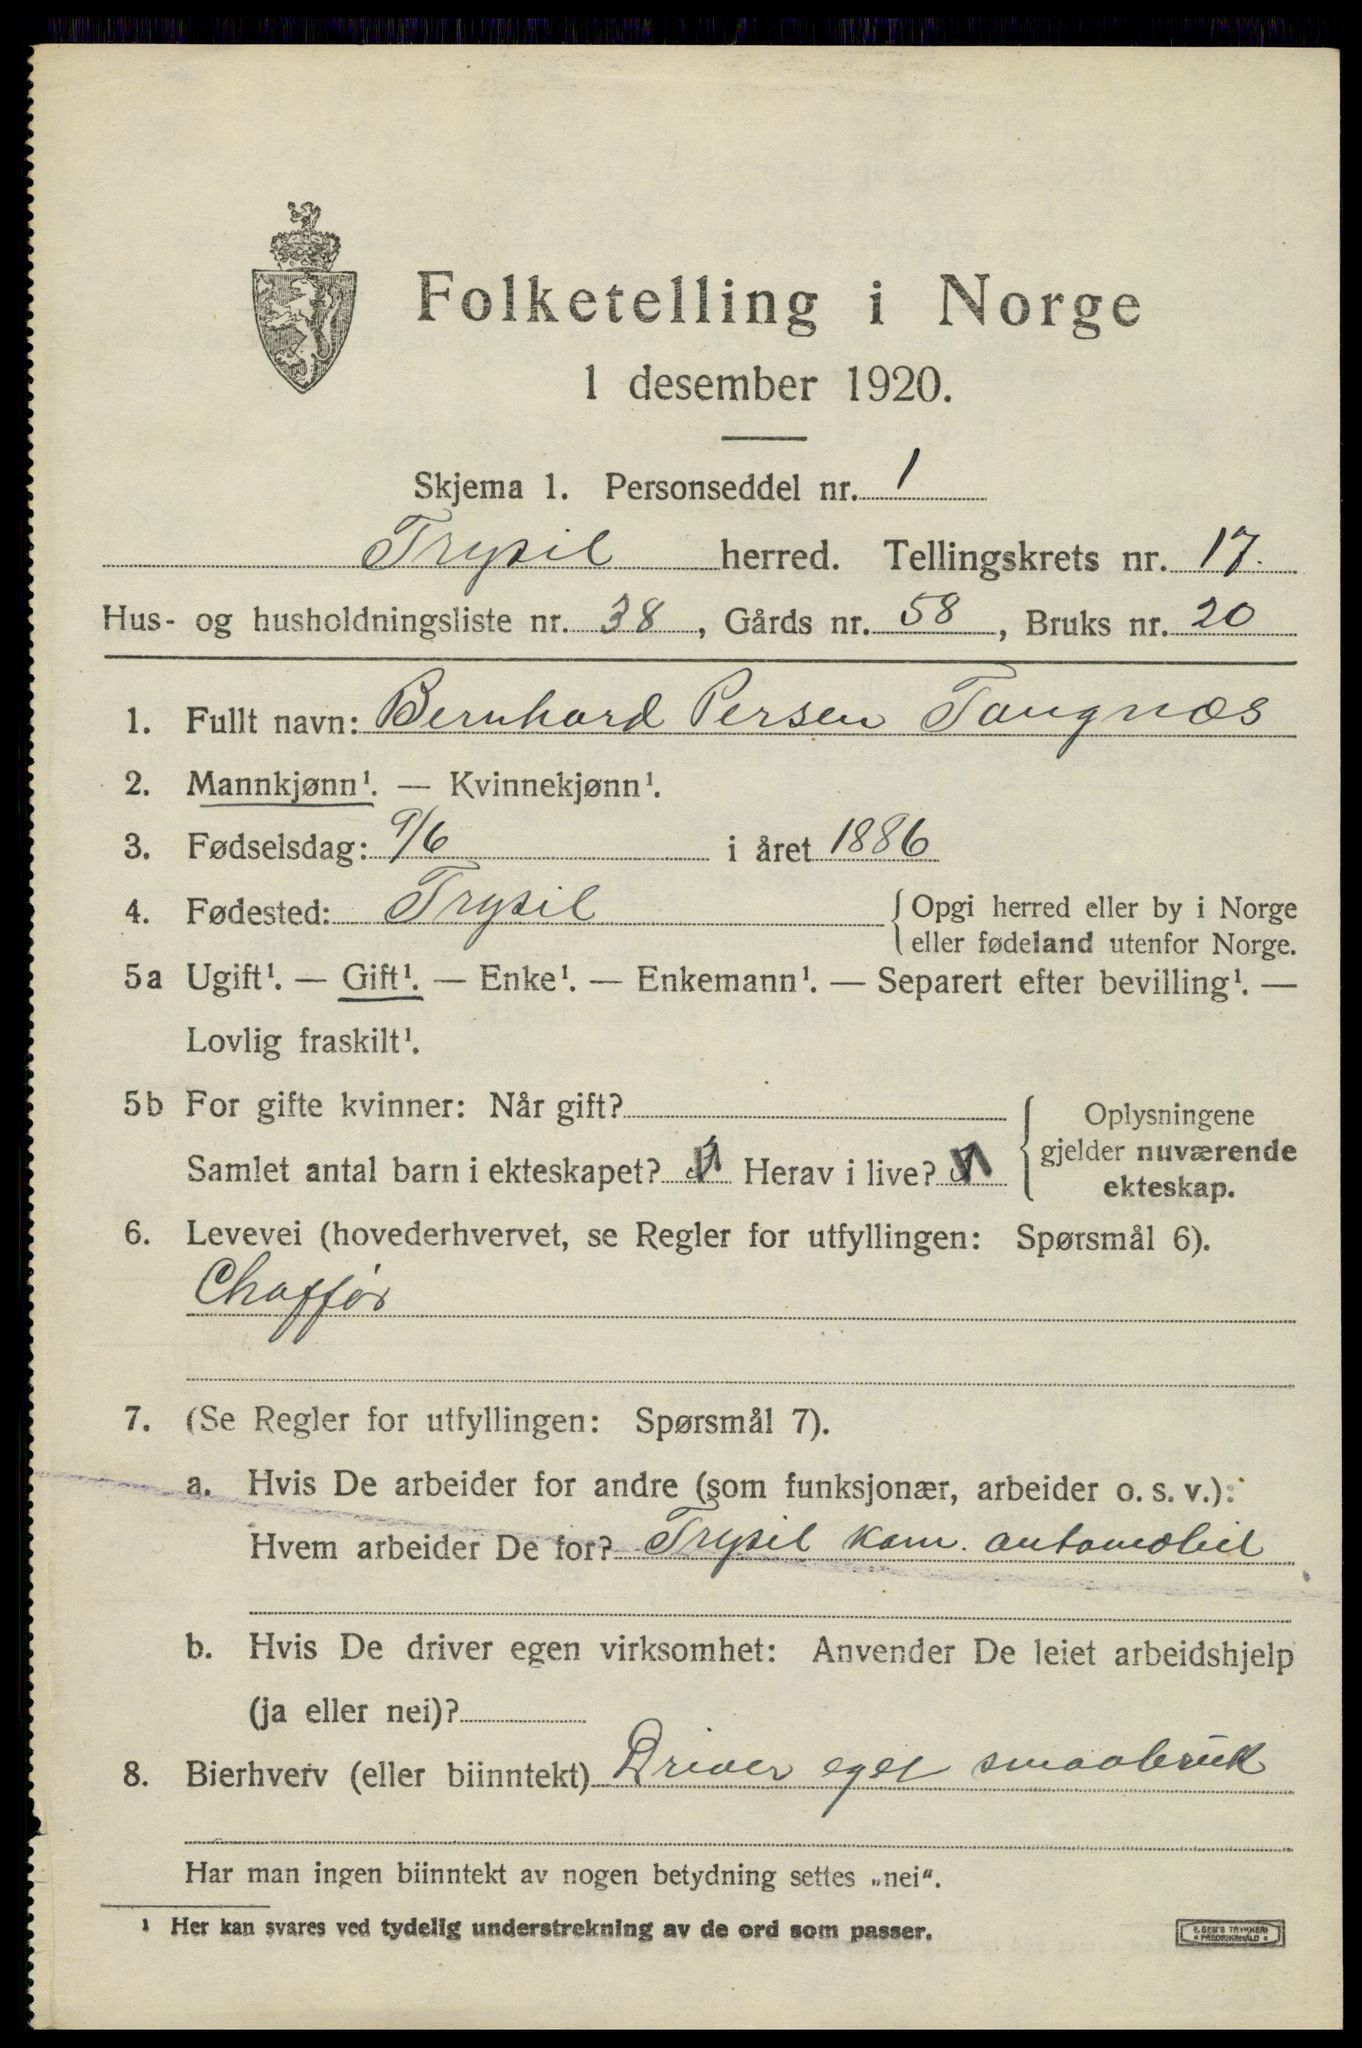 Folketelling i Norge
1 desember 1920.
Skjema 1. Personseddel nr. 1
Trysil herred. Tellingskrets nr. 17.
Hus- og husholdningsliste nr. 38, Gårds nr. 58, Bruks nr. 20
1. Fullt navn: Bernhard Persen Tangnæs
2. Mannkjønn¹. — Kvinnekjønn¹.
3. Fødselsdag: 9/6 i året 1886
4. Fødested: Trysil { Opgi herred eller by i Norge
eller fødeland utenfor Norge.
5a Ugift¹. — Gift¹. — Enke¹. — Enkemann¹. — Separert efter bevilling¹. —
Lovlig fraskilt¹.
5b For gifte kvinner: Når gift?
Samlet antal barn i ekteskapet? Herav i live?
{ Oplysningene
gjelder nuværende
ekteskap.
6. Levevei (hovederhvervet, se Regler for utfyllingen: Spørsmål 6).
Chaffør
7. (Se Regler for utfyllingen: Spørsmål 7).
a. Hvis De arbeider for andre (som funksjonær, arbeider o. s. v.):
Hvem arbeider De for? Trysil kom. automobil
b. Hvis De driver egen virksomhet: Anvender De leiet arbeidshjelp
(ja eller nei)?
8. Bierhverv (eller biinntekt) Driver eget smaabruk
Har man ingen biinntekt av nogen betydning settes „nei“.
¹ Her kan svares ved tydelig understrekning av de ord som passer.